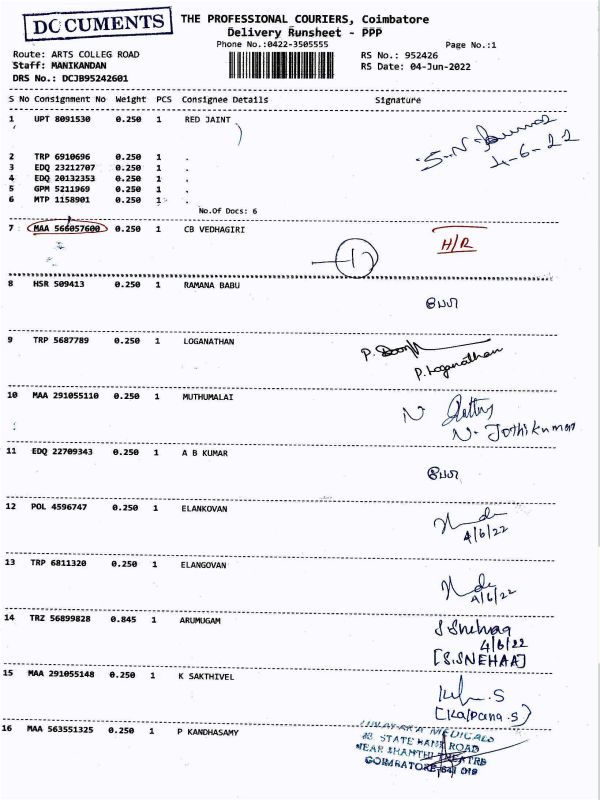 DOCUMENTS
THE PROFESSIONAL COURIERS, Coimbatore
Delivery Runsheet - PPP
Phone No.:0422-3505555
Page No.:1
Route: ARTS COLLEG ROAD
Staff: MANIKANDAN
DRS No.: DCJB95242601
RS No.: 952426
RS Date: 04-Jun-2022
S No Consignment No Weight PCS Consignee Details Signature
1 UPT 8091530 0.250 1 RED JAINT
4-6-22
2 TRP 6910696 0.250 1 .
3 EDQ 23212707 0.250 1 .
4 EDQ 20132353 0.250 1 .
5 GPM 5211969 0.250 1 .
6 MTP 1158901 0.250 1 .
No.Of Docs: 6
7 MAA 566057600 0.250 1 CB VEDHAGIRI
H/R
8 HSR 509413 0.250 1 RAMANA BABU
9 TRP 5687789 0.250 1 LOGANATHAN
P. Loganathan
10 MAA 291055110 0.250 1 MUTHUMALAI
N. Jothikumar
11 EDQ 22709343 0.250 1 A B KUMAR
12 POL 4596747 0.250 1 ELANKOVAN
4/6/22
13 TRP 6811320 0.250 1 ELANGOVAN
4/6/22
14 TRZ 56899828 0.845 1 ARUMUGAM
S Snehaa
4/6/22
[S.SNEHAA]
15 MAA 291055148 0.250 1 K SAKTHIVEL
[Kalpana.S]
16 MAA 563551325 0.250 1 P KANDHASAMY
MEDICALS
STATE BANK ROAD
NEAR SHANTHI THEATRE
COIMBATORE-641 018